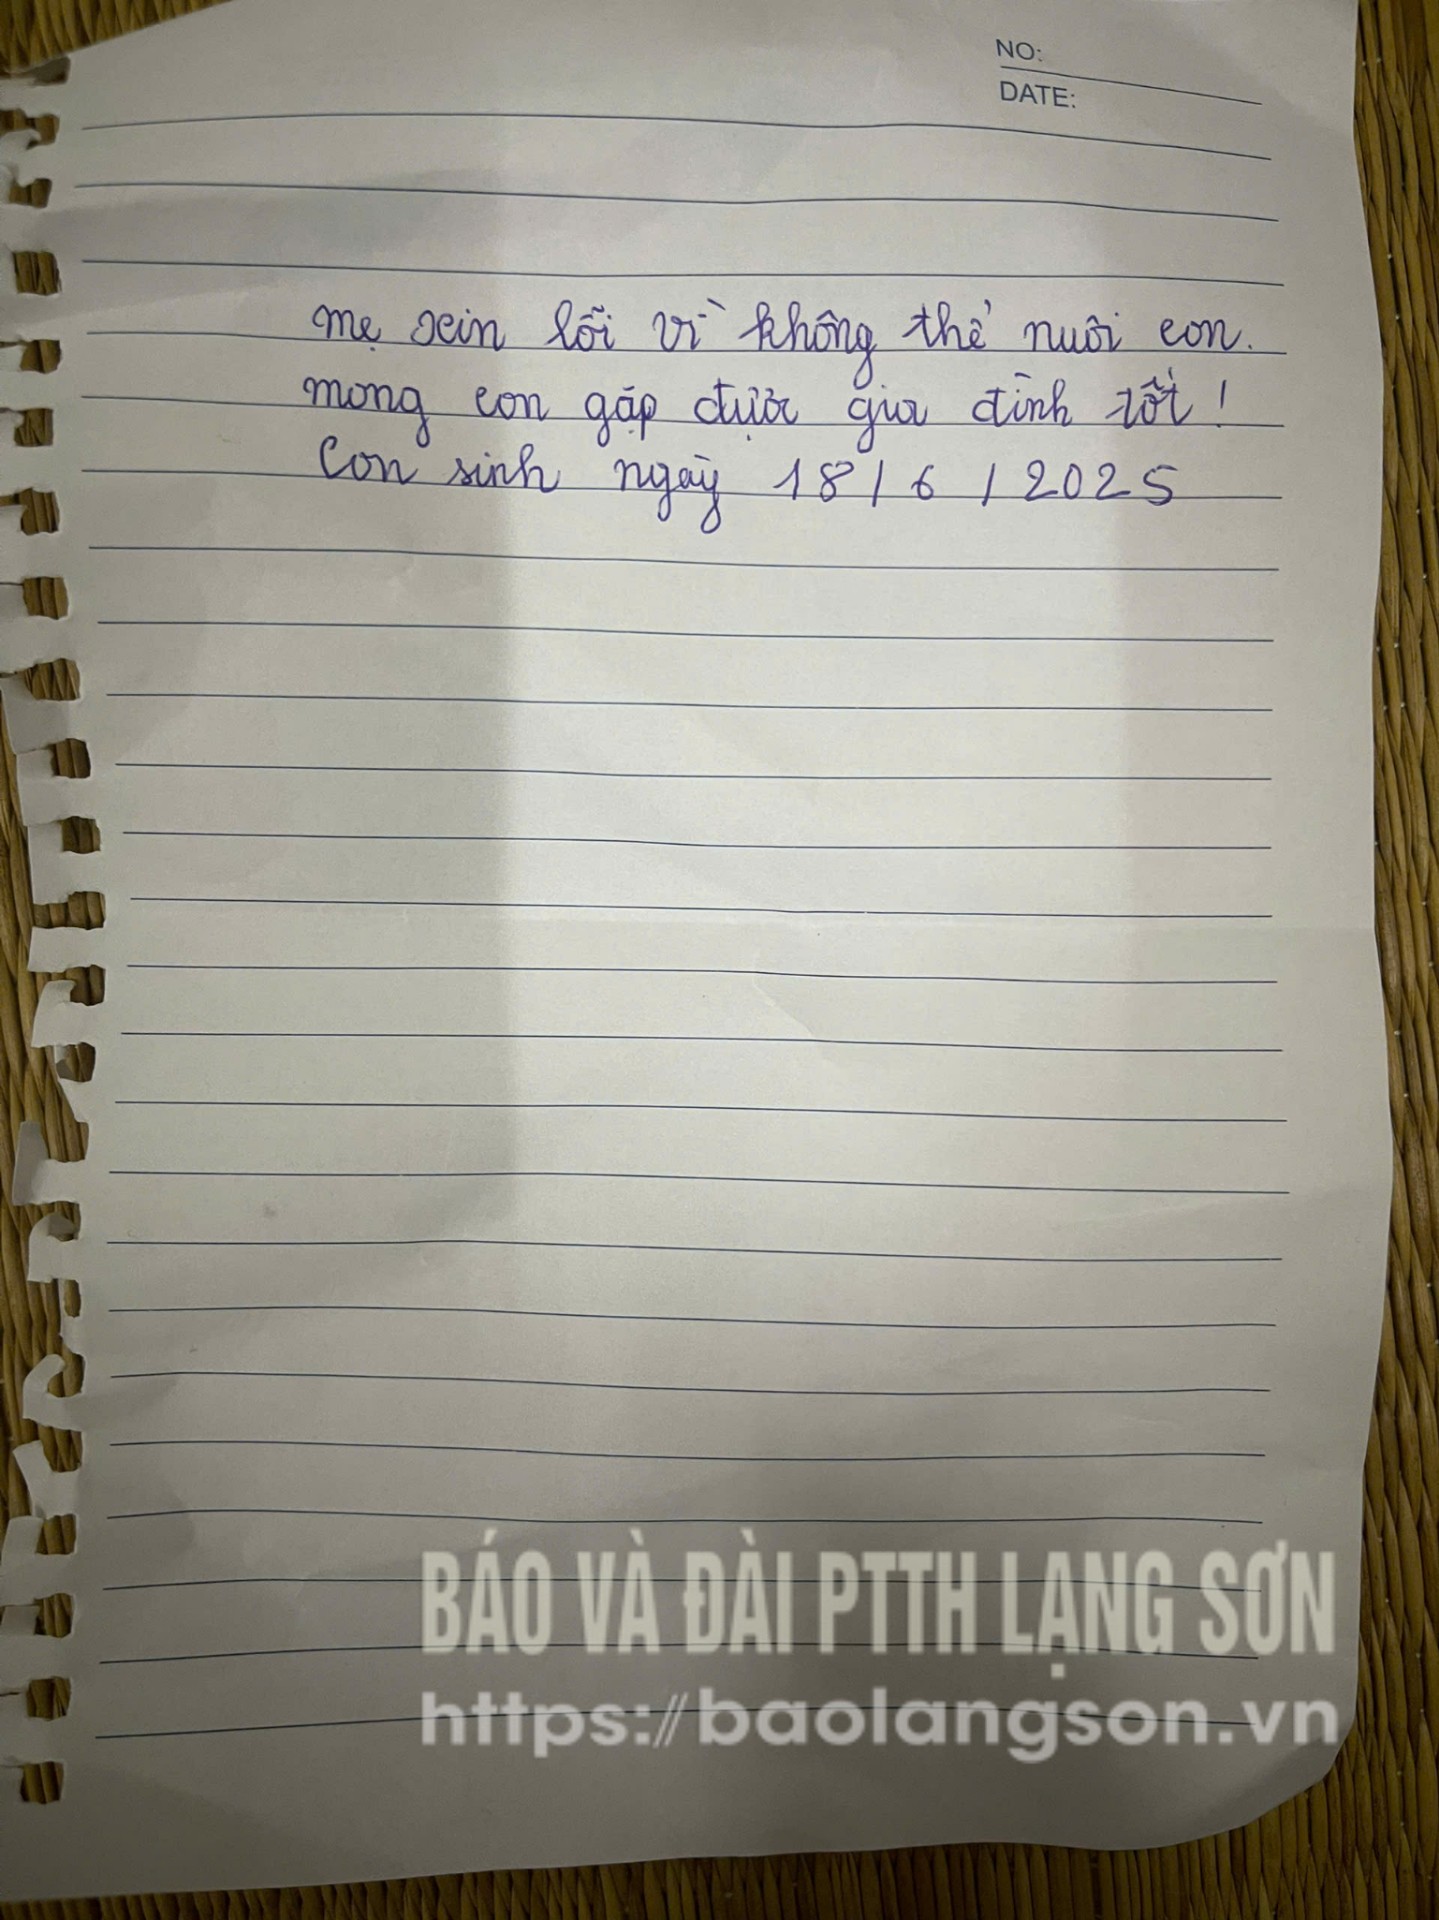 NO:
DATE:
mẹ xin lỗi vì không thể nuôi con.
mong con gặp được gia đình tốt!
Con sinh ngày 18/6/2025
BÁO VÀ ĐÀI PTTH LẠNG SƠN
https://baolangson.vn